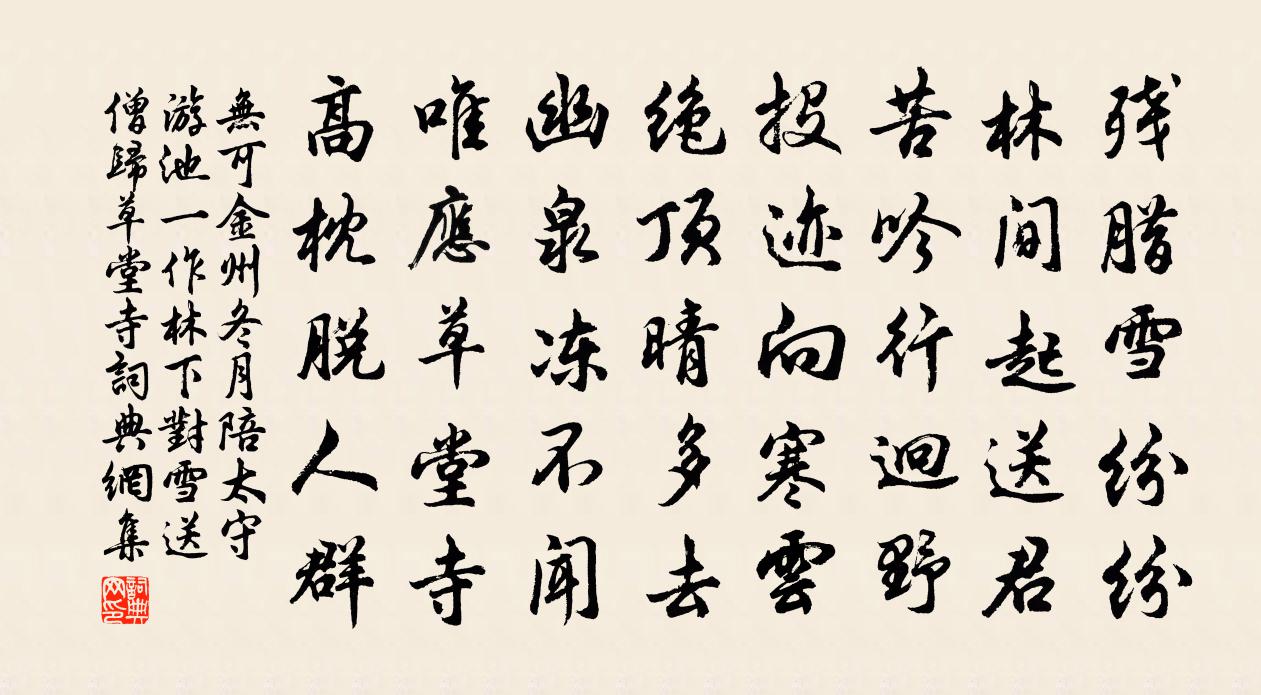 残腊雪纷纷
林间起送君
苦吟行迥野
投迹向寒雲
绝顶晴多去
幽泉冻不闻
唯應草堂寺
高枕脱人群
無可金州冬月陪太守
游池一作林下對雪送
僧歸草堂寺詞典網集
詞典网印